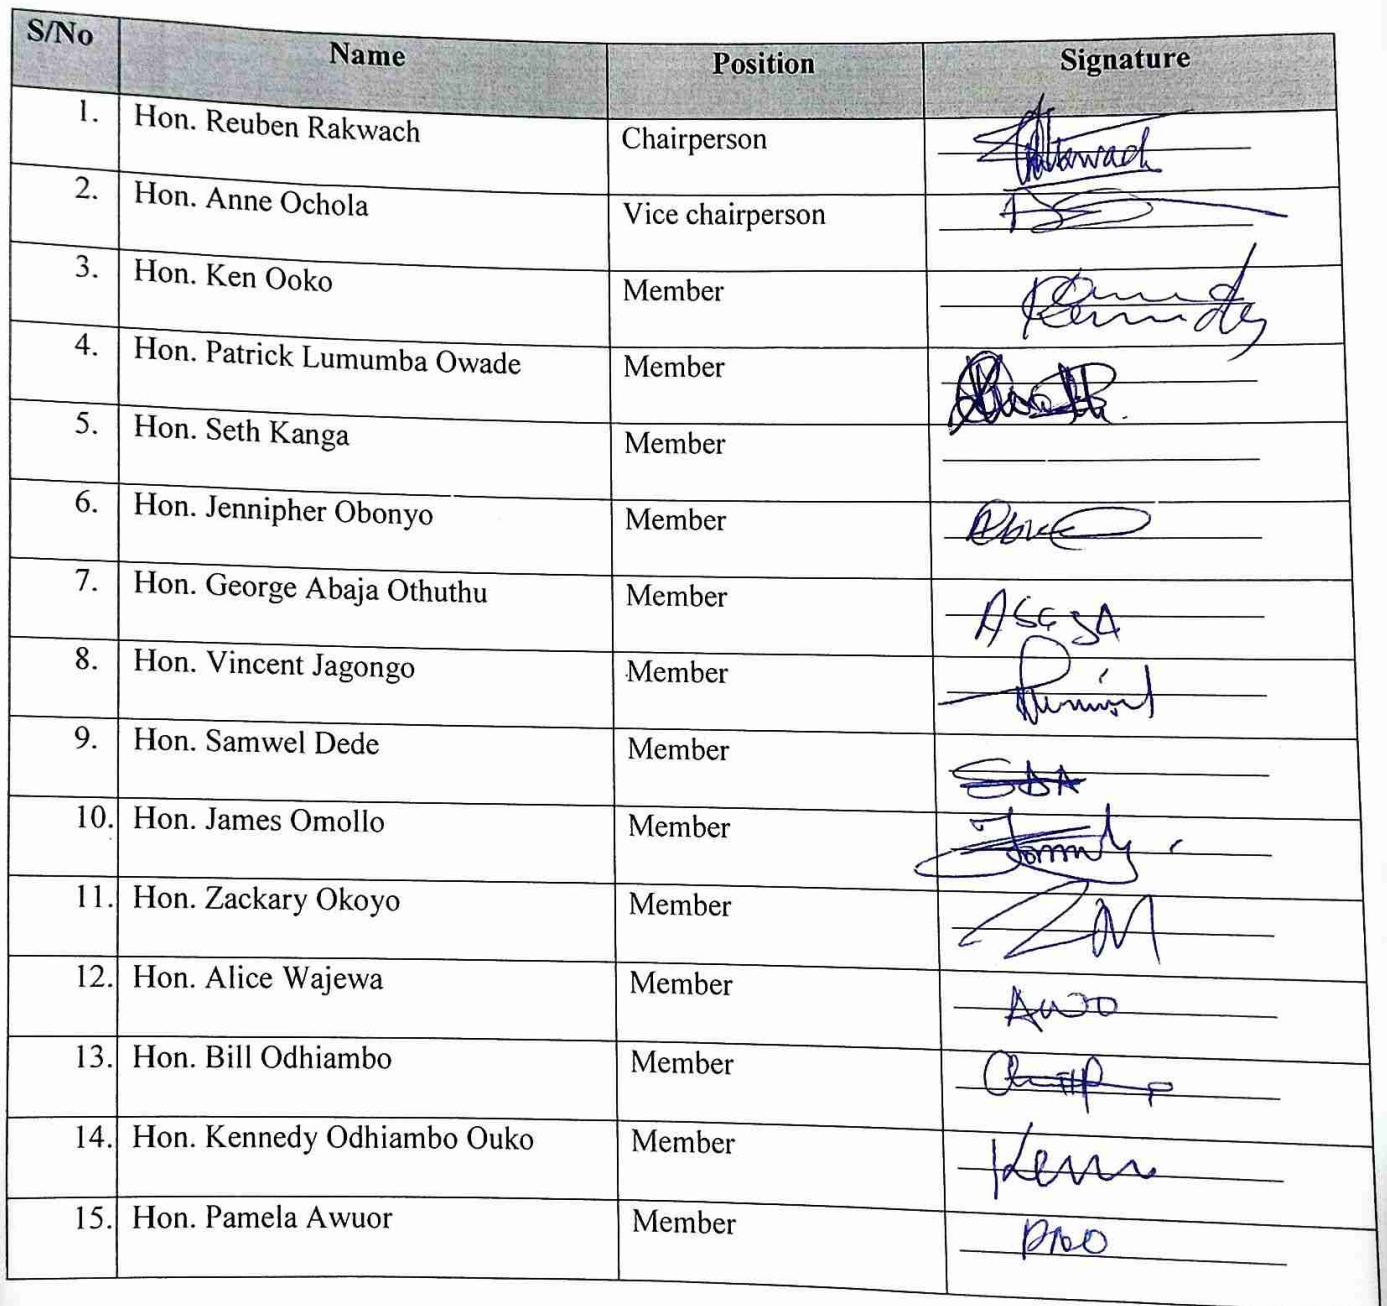 S/No Name Position Signature
1. Hon. Reuben Rakwach Chairperson
2. Hon. Anne Ochola Vice chairperson
3. Hon. Ken Ooko Member Kennedy
4. Hon. Patrick Lumumba Owade Member
5. Hon. Seth Kanga Member
6. Hon. Jennipher Obonyo Member
7. Hon. George Abaja Othuthu Member
8. Hon. Vincent Jagongo Member
9. Hon. Samwel Dede Member
10. Hon. James Omollo Member
11. Hon. Zackary Okoyo Member
12. Hon. Alice Wajewa Member
13. Hon. Bill Odhiambo Member
14. Hon. Kennedy Odhiambo Ouko Member
15. Hon. Pamela Awuor Member